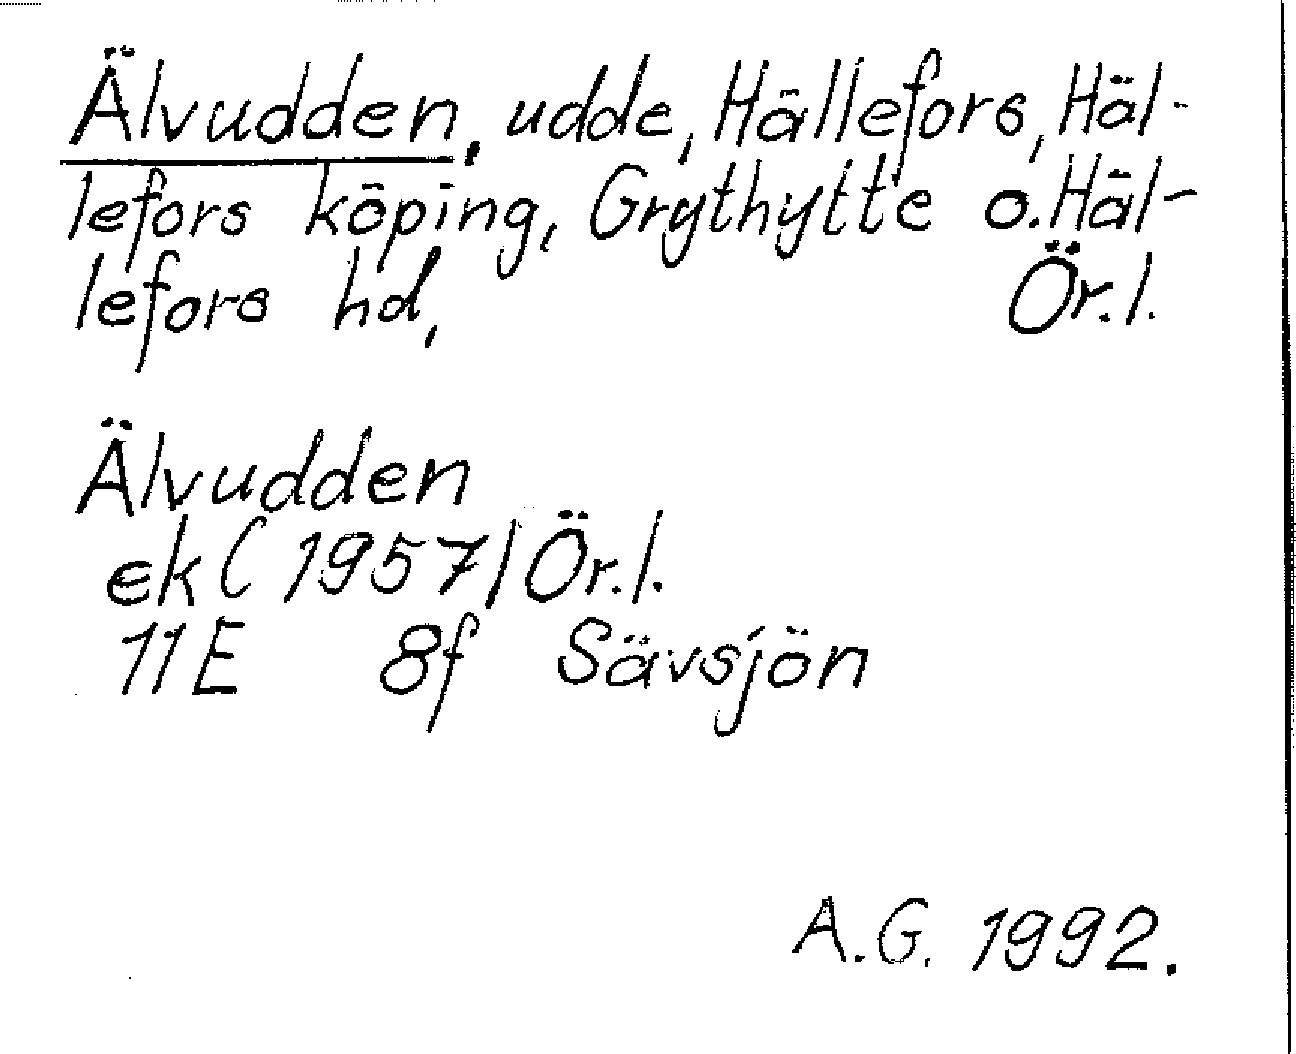 Älvudden, udde, Hällefors, Häl-
lefors köping, Grythytte o. Häl-
lefors hd, Ör.l.
Älvudden
ek (1957) Ör.l.
11E 8f Sävsjön
A.G. 1992.